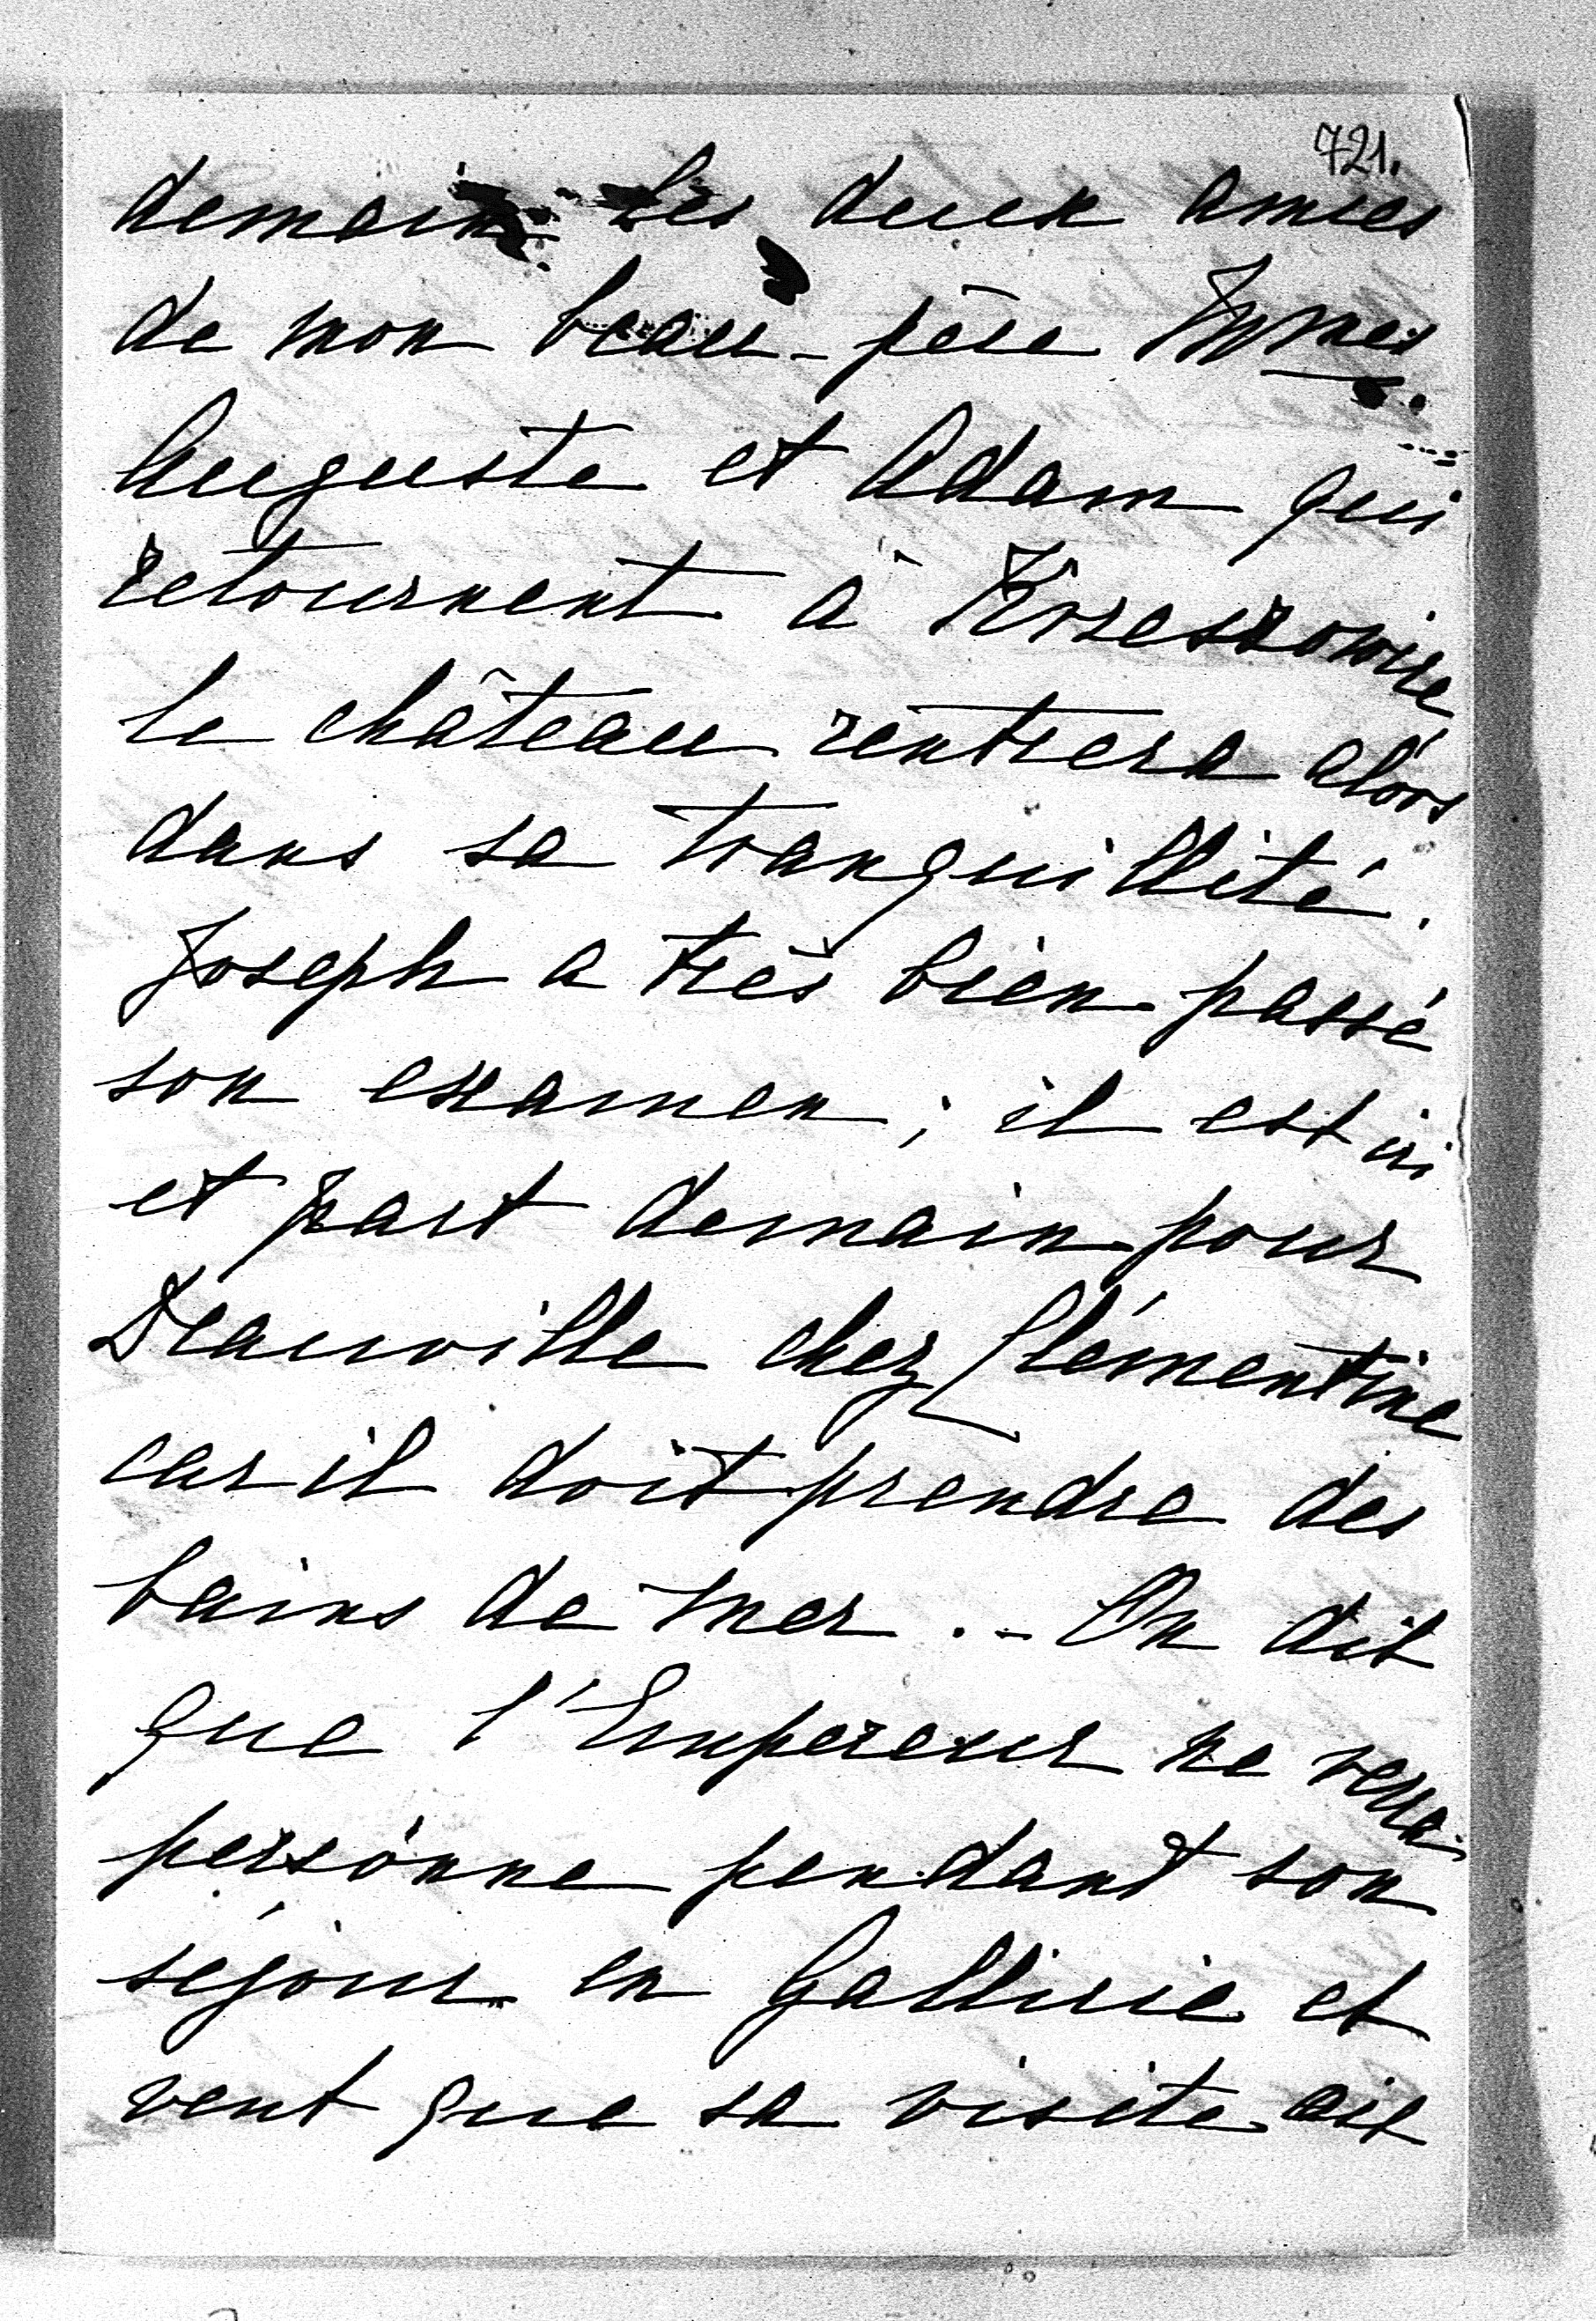 721.
demain les deux amies
de mon beau-père Mmes
Auguste et Adam qui
retournent à Krzeszowice
le château rentrera alors
dans sa tranquillité.
Joseph a très bien passé
son examen ; il est ici
et part demain pour
Deauville chez Clémentine
car il doit prendre des
bains de mer .- On dit
que l'Empereur ne verra
personne pendant son
séjour en Gallicie et
veut que sa visite ait